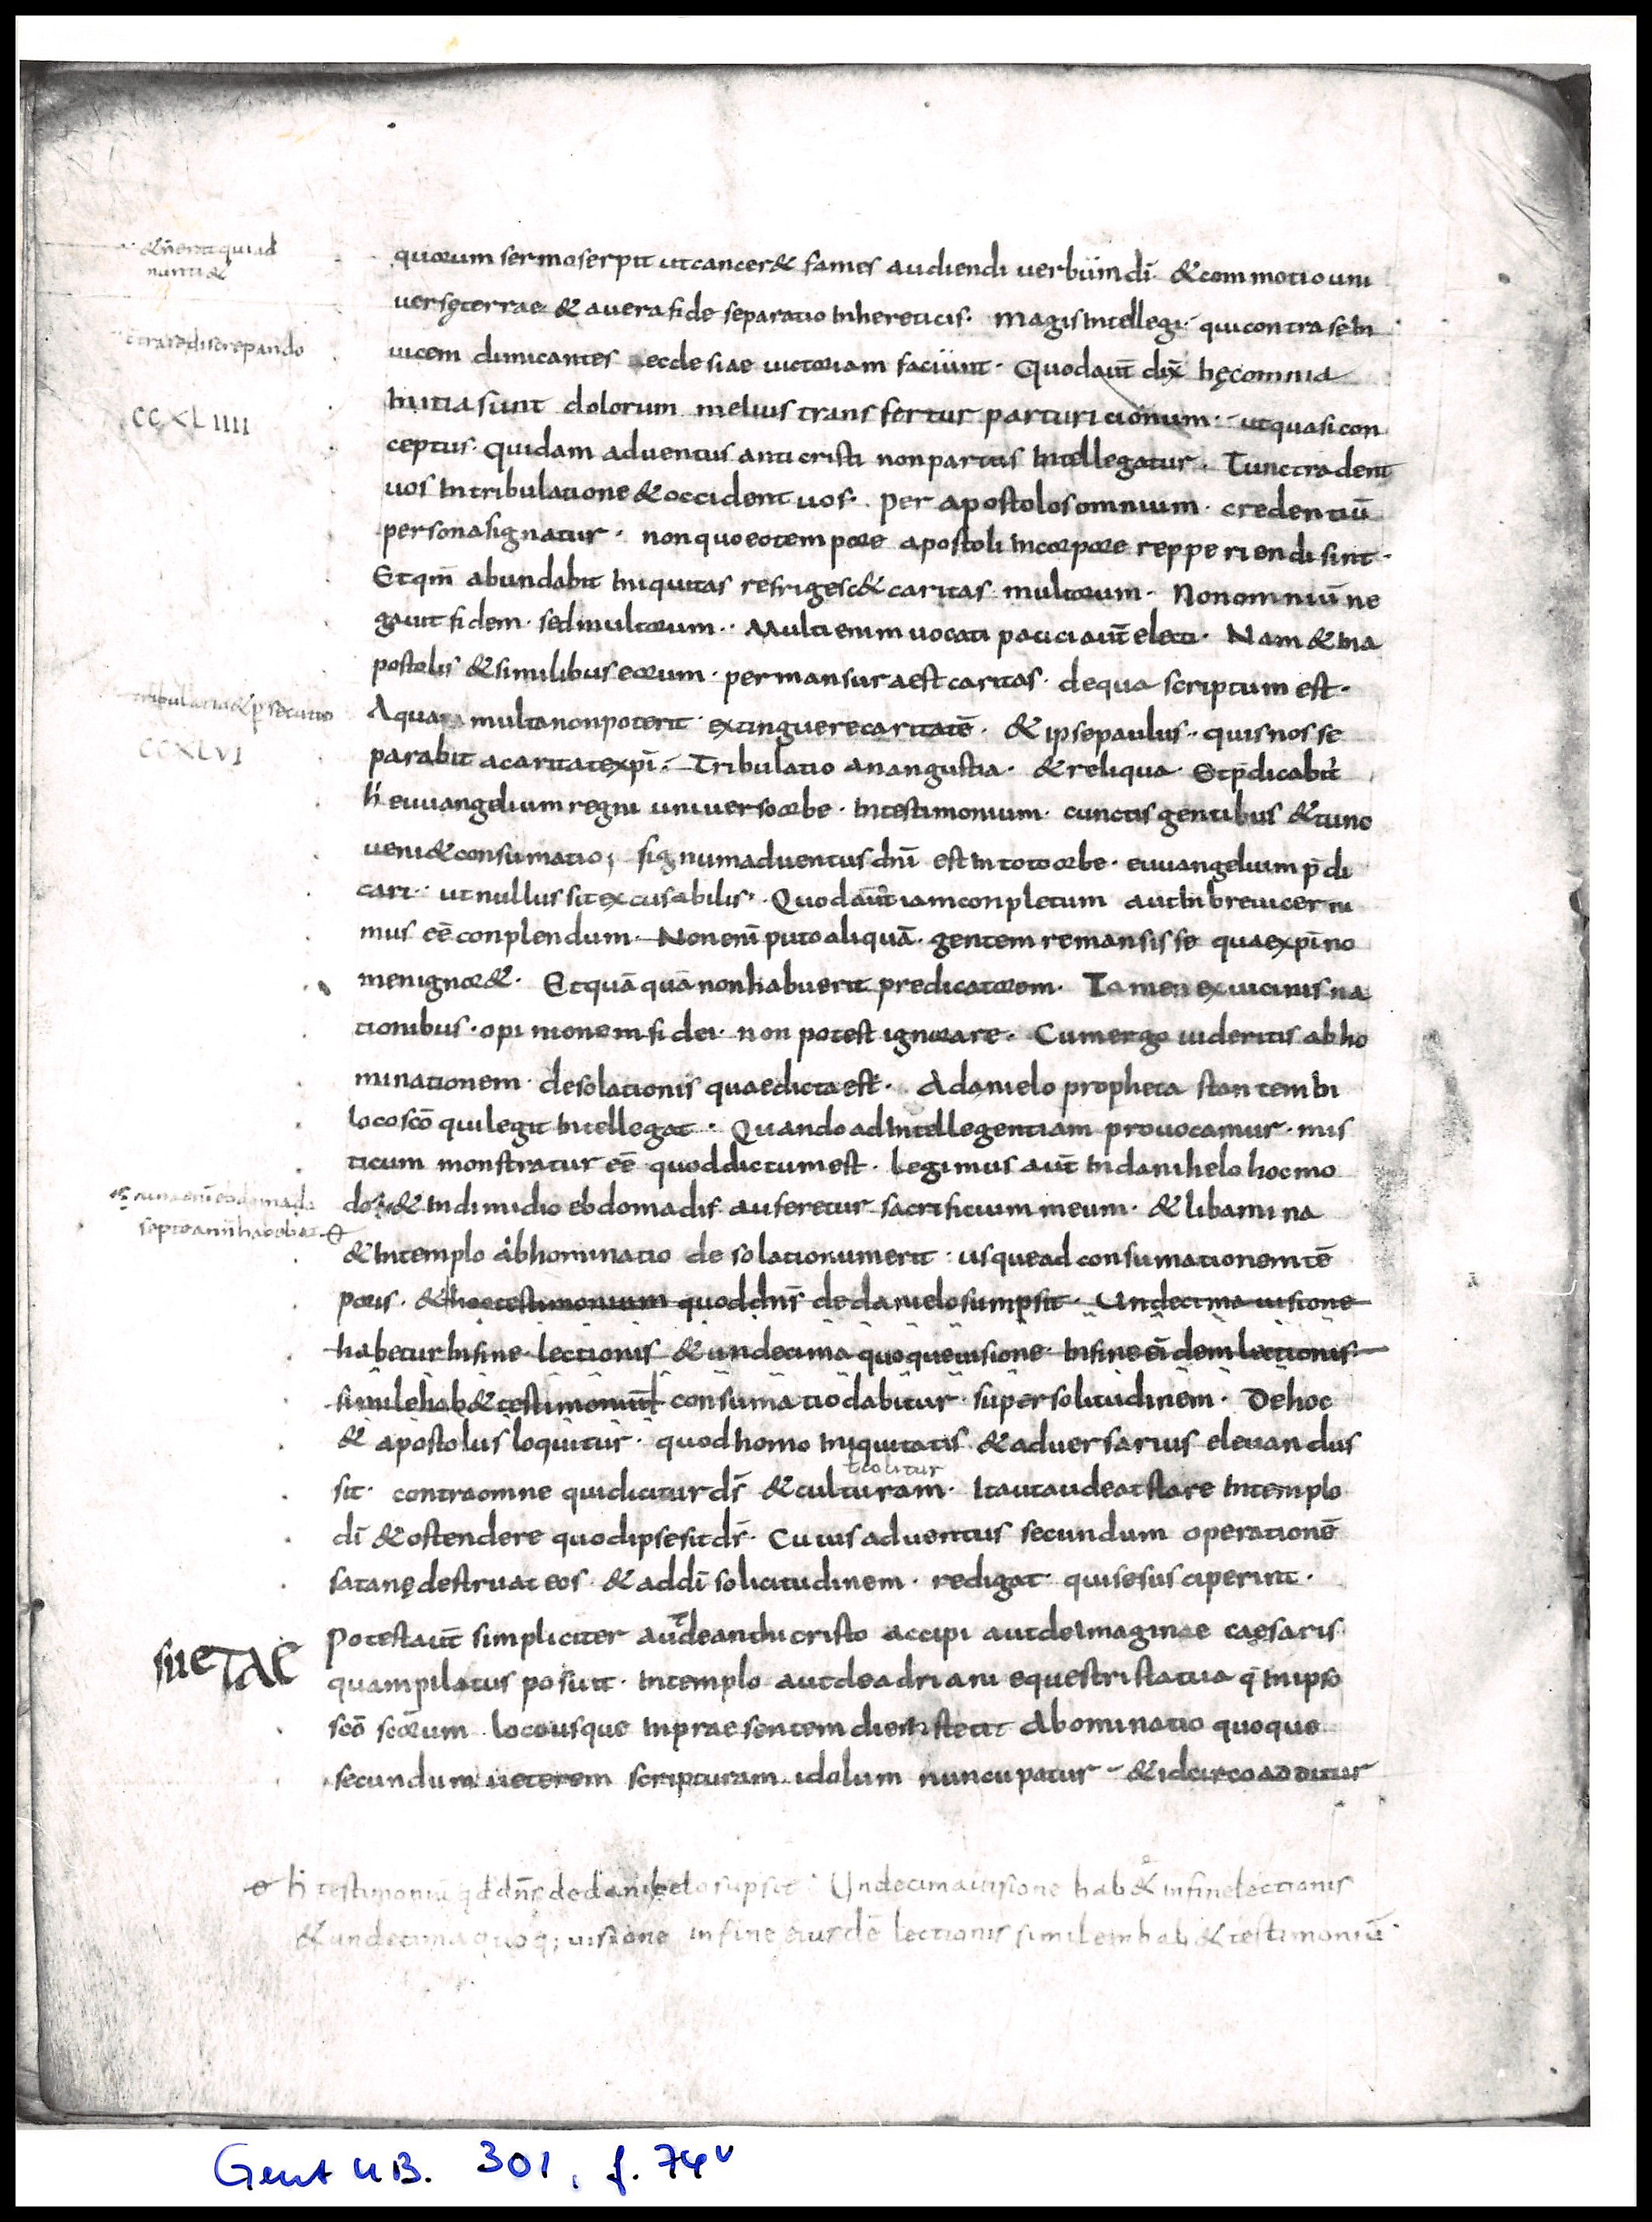 quorum sermo serpit ut cancer & fames audiendi uerbum dī · & commotio uni
uersę terrae & a uera fide separatio In hereticis · magis Intellegi · qui contra se In
uicem dimicantes aecclesiae uictoriam faciunt · Quod aut̄ dix̄ hęc omnia
Initia sunt dolorum melius transfertur parturicionum · ut quasi con
CCXLIIII
ceptus · quidam aduentus anticristi non partus Intellegatur · Tunc tradent
uos In tribulatione & occident uos · per apostolos omnium · credentiū
persona signatur · non quo eo tempore apostoli In corpore repperiendi sint ·
Et qm̄ abundabit Iniquitas refrigesc& caritas multorum · Non omniū ne
gauit fidem · sed multorum · Multi enim uocati pauci aut̄ electi · Nam & In a
postolis & similibus eorum · permansura est caritas · de qua scriptum est ·
tribulatio & p̄secutio
Aqua multa non poterit · extinguere caritatē · & ipse paulus · quis nos se
CCXLVI
parabit a caritate xp̄i · Tribulatio an angustia · & reliqua · Et p̄dicabit̄
h̄ euuangelium regni uniuerso orbe · In testimonium · cunctis gentibus & tunc
ueni& consumatio ; signum aduentus dnī est In toto orbe · euuangelium p̄di
cari · ut nullus sit excusabilis · Quod aut̄ iam conpletum aut In breui cerni
mus eē conplendum · Non enī puto aliquā · gentem remansisse quae xp̄i no
men ignor& · Et quā quā non habuerit predicatorem · Tamen ex uicinis na
tionibus · opinionem fidei · non potest ignorare · Cum ergo uideritis abho
minationem · desolationis quae dicta est · A danielo propheta stantem In
loco scō qui legit Intellegat · Quando ad Intellegentiam prouocamur · mis
ticum monstratur eē quod dictum est · Legimus aut̄ In danihelo hoc mo
do · & In dimidio ebdomadis auferetur sacrificium meum · & libamina
& In templo abhominatio desolationum erit : usque ad consumationem tē
poris · & hoc testimonium quod dns̄ de danielo sumpsit · Undecima uisione
habetur In fine lectionis & undecima quoque uisione · In fine eī dem lectionis
simile hab& testimoniū consumatio dabitur · super solitudinem · De hoc
& apostolus loquitur · quod homo Iniquitatis & aduersarius eleuandus
t colitur
sit · contra omne qui dicitur ds̄ & culturam · Ita ut audeat stare In templo
dī & ostendere quod ipse sit ds̄ · Cuius aduentus secundum operationē
satanę destruat eos · & ad dī solicitudinem · redigat · qui se susciperint ·
Potest aut̄ simpliciter aut de anthicristo accipi aut de Imaginae caesaris
quam pilatus posuit · In templo aut de adriani equestri statua q̄ In ipso
scō scorum loco usque In praesentem diem stetit Abominatio quoque
secundum ueterem scripturam idolum nuncupatur · & idcirco additur
h̄ testimoniū qd dn̄s de danihelo supsit : Undecima uisione hab& in fine lectionis
& undecima quoq; uisione in fine eiusdē lectionis similem hab& testimoniū
Gent UB. 301, f. 74v